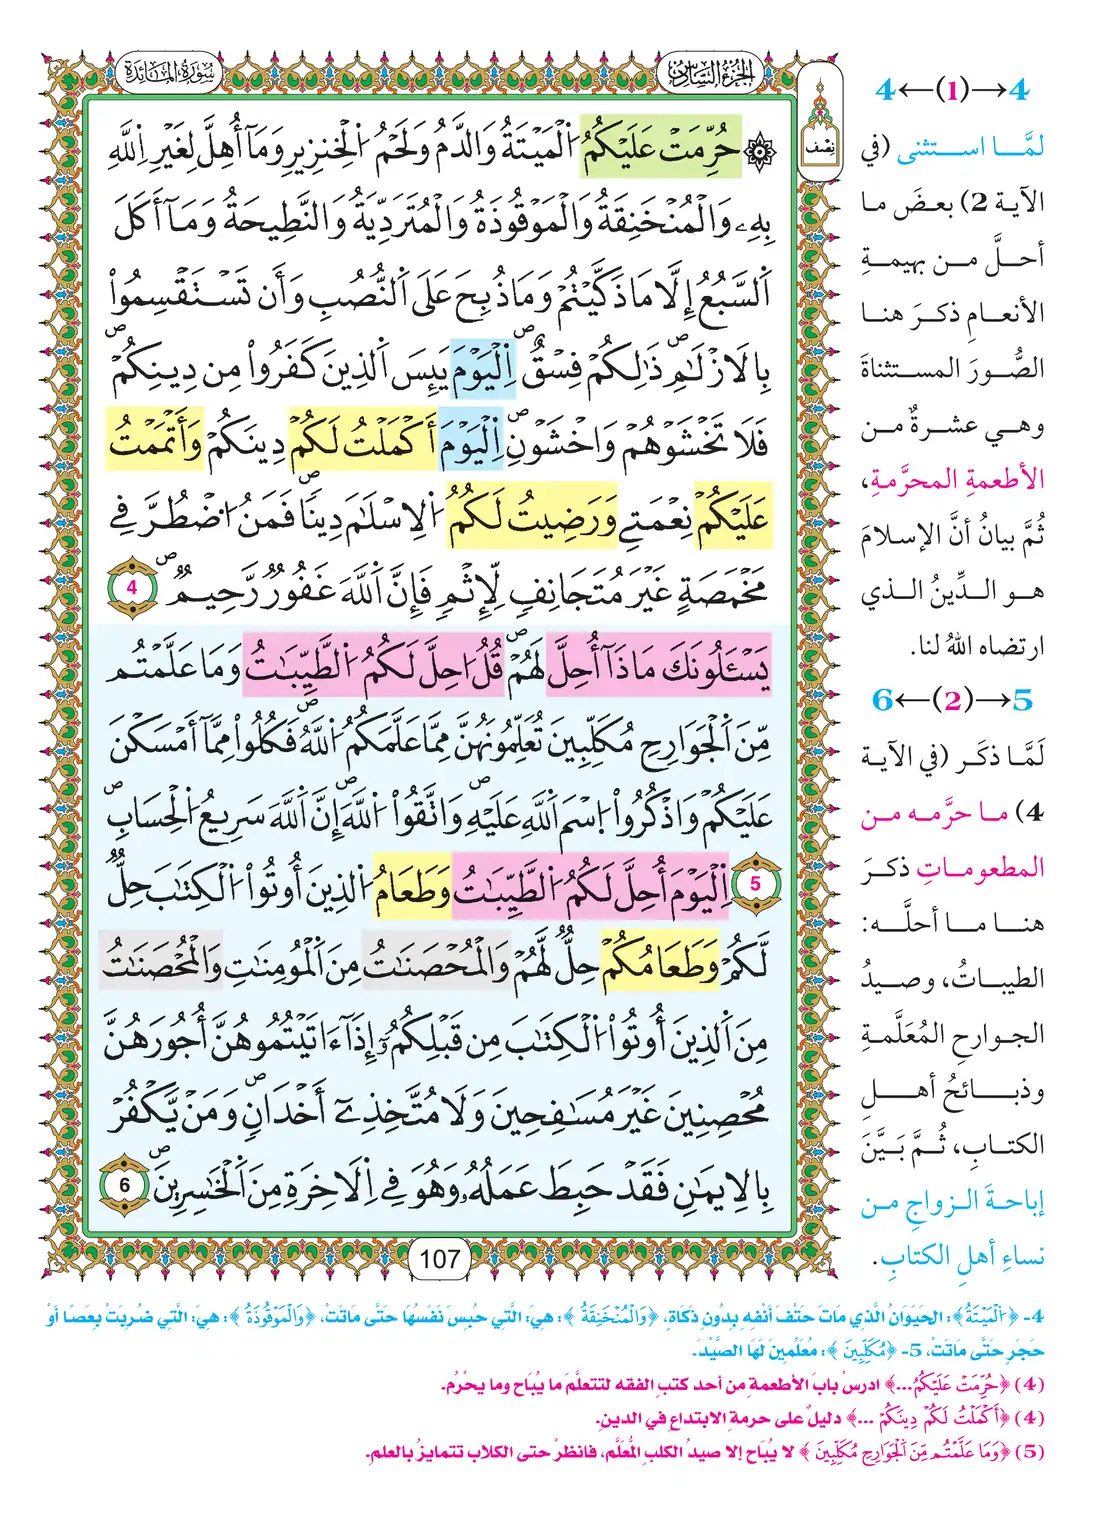 الجزء السادس
سورة المائدة
نصف
حُرِّمَتْ عَلَيْكُمُ اُ۬لْمَيْتَةُ وَالدَّمُ وَلَحْمُ اُ۬لْخِنزِيرِ وَمَآ أُهِلَّ لِغَيْرِ اِ۬للَّهِ
بِهِۦ وَالْمُنْخَنِقَةُ وَالْمَوْقُوذَةُ وَالْمُتَرَدِّيَةُ وَالنَّطِيحَةُ وَمَآ أَكَلَ
اَ۬لسَّبُعُ إِلَّا مَا ذَكَّيْتُمْ وَمَا ذُبِحَ عَلَى اَ۬لنُّصُبِ وَأَن تَسْتَقْسِمُواْ
بِالَازْلَٰمِ ذَٰلِكُمْ فِسْقٌ اِ۬لْيَوْمَ يَئِسَ اَ۬لذِينَ كَفَرُواْ مِن دِينِكُمْ
فَلَا تَخْشَوْهُمْ وَاخْشَوْنِ اِ۬لْيَوْمَ أَكْمَلْتُ لَكُمْ دِينَكُمْ وَأَتْمَمْتُ
عَلَيْكُمْ نِعْمَتِے وَرَضِيتُ لَكُمُ اُ۬لِاسْلَٰمَ دِيناٗ فَمَنُ اُ۟ضْطُرَّ فِے
مَخْمَصَةٍ غَيْرَ مُتَجَانِفٖ لِّإِثْمٖ فَإِنَّ اَ۬للَّهَ غَفُورٞ رَّحِيمٞ 4
يَسْـَٔلُونَكَ مَاذَآ أُحِلَّ لَهُمْ قُلُ احِلَّ لَكُمُ اُ۬لطَّيِّبَٰتُ وَمَا عَلَّمْتُم
مِّنَ اَ۬لْجَوَارِحِ مُكَلِّبِينَ تُعَلِّمُونَهُنَّ مِمَّا عَلَّمَكُمُ اُ۬للَّهُ فَكُلُواْ مِمَّآ أَمْسَكْنَ
عَلَيْكُمْ وَاذْكُرُواْ اُ۪سْمَ اَ۬للَّهِ عَلَيْهِ وَاتَّقُواْ اُ۬للَّهَ إِنَّ اَ۬للَّهَ سَرِيعُ اُ۬لْحِسَابِ
5 اِ۬لْيَوْمَ أُحِلَّ لَكُمُ اُ۬لطَّيِّبَٰتُ وَطَعَامُ اُ۬لذِينَ أُوتُواْ اُ۬لْكِتَٰبَ حِلّٞ
لَّكُمْ وَطَعَامُكُمْ حِلّٞ لَّهُمْ وَالْمُحْصَنَٰتُ مِنَ اَ۬لْمُومِنَٰتِ وَالْمُحْصَنَٰتُ
مِنَ اَ۬لذِينَ أُوتُواْ اُ۬لْكِتَٰبَ مِن قَبْلِكُمُۥٓ إِذَآ ءَاتَيْتُمُوهُنَّ أُجُورَهُنَّ
مُحْصِنِينَ غَيْرَ مُسَٰفِحِينَ وَلَا مُتَّخِذِےٓ أَخْدَانٖ وَمَنْ يَّكْفُرْ
بِالِايمَٰنِ فَقَدْ حَبِطَ عَمَلُهُۥ وَهُوَ فِے اِ۬لَاخِرَةِ مِنَ اَ۬لْخَٰسِرِينَ 6
107
4←(1)→4
لمَّا استثنى (في
الآية 2) بعضَ ما
أحلَّ من بهيمةِ
الأنعامِ ذكرَ هنا
الصُّورَ المستثناةَ
وهي عشرةٌ من
الأطعمةِ المحرَّمةِ،
ثُمَّ بيانُ أنَّ الإسلامَ
هو الدِّينُ الذي
ارتضاه اللهُ لنا.
6←(2)→5
لَمَّا ذكَر (في الآية
4) ما حرَّمه من
المطعوماتِ ذكرَ
هنا ما أحلَّه:
الطيباتُ، وصيدُ
الجوارحِ المُعَلَّمةِ
وذبائحُ أهلِ
الكتابِ، ثُمَّ بَيَّنَ
إباحةَ الزواجِ من
نساءِ أهلِ الكتابِ.
4- ﴿اُ۬لْمَيْتَةُ﴾: الحَيَوَانُ الَّذِي مَاتَ حَتْفَ أَنْفِهِ بِدُونِ ذَكَاةٍ، ﴿وَالْمُنْخَنِقَةُ﴾: هِيَ: الَّتِي حُبِسَ نَفَسُهَا حَتَّى مَاتَتْ، ﴿وَالْمَوْقُوذَةُ﴾: هِيَ: الَّتِي ضُرِبَتْ بِعَصًا أَوْ
حَجَرٍ حَتَّى مَاتَتْ، 5- ﴿مُكَلِّبِينَ﴾: مُعَلِّمِينَ لَهَا الصَّيْدَ.
(4) ﴿حُرِّمَتْ عَلَيْكُمُ...﴾ ادرسْ بابَ الأطعمةِ من أحد كتبِ الفقه لتتعلَّمَ ما يُبَاح وما يحْرُم.
(4) ﴿أَكْمَلْتُ لَكُمْ دِينَكُمْ ...﴾ دليلٌ على حرمةِ الابتداعِ في الدينِ.
(5) ﴿وَمَا عَلَّمْتُم مِّنَ اَ۬لْجَوَارِحِ مُكَلِّبِينَ﴾ لا يُبَاح إلا صيدُ الكلبِ المُعَلَّمِ، فانظرْ حتى الكلاب تتمايزُ بالعلمِ.